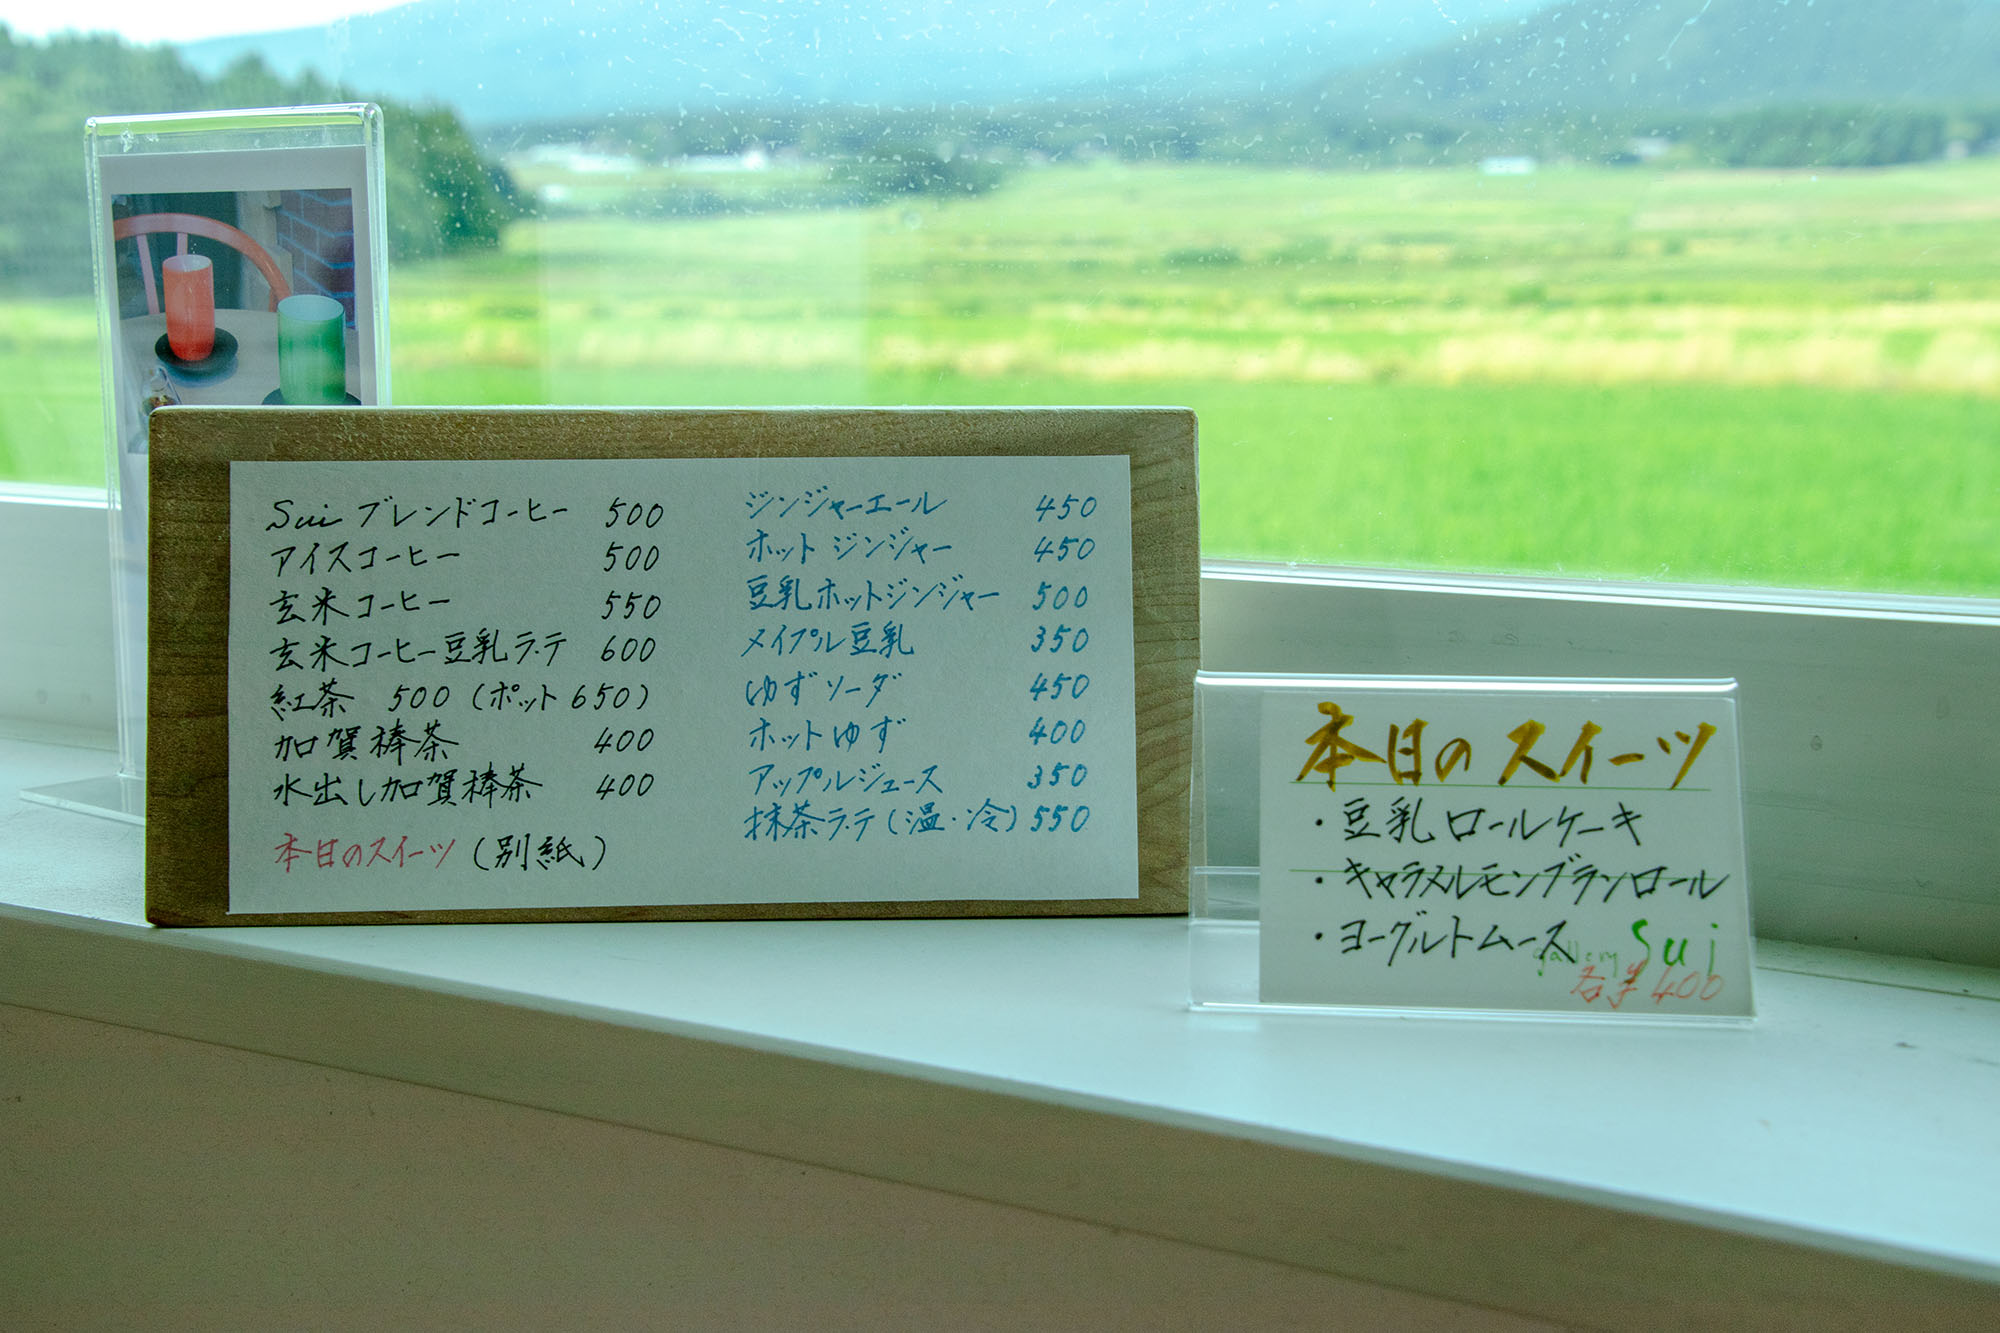 Sui ブレンドコーヒー 500
アイスコーヒー 500
玄米コーヒー 550
玄米コーヒー豆乳ラテ 600
紅茶 500 (ポット 650)
加賀棒茶 400
水出し加賀棒茶 400
本日のスイーツ (別紙)
ジンジャーエール 450
ホット ジンジャー 450
豆乳ホットジンジャー 500
メイプル豆乳 350
ゆずソーダ 450
ホットゆず 400
アップルジュース 350
抹茶ラテ (温・冷) 550
本日の スイーツ
・豆乳ロールケーキ
・キャラメルモンブランロール
・ヨーグルトムース
gallery Sui
各¥400